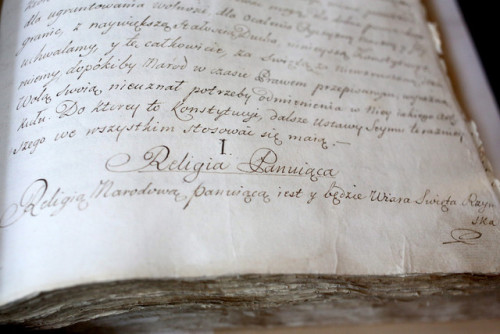 dla ugruntowania wolności dla ocalenia Oyczyzny naszey, y iey
granic, z naywiększą Stałością Ducha ninieyszą Konstytucyę
uchwalamy, y tę całkowicie, za Świętą, za niewzruszoną
niemy, dopókiby Naród w czasie Prawem przepisanym wyraźną
Wolą Swoią nieuznał potrzeby odmienienia w Niey iakiego Arty
kułu. Do ktorey to Konstytucyi, dalsze Ustawy Seymu teraźniey
szego we wszystkim stosować się maią. –
I.
Religia Panuiąca
Religią Narodową panuiącą iest y będzie Wiara Święta Rzym
ska